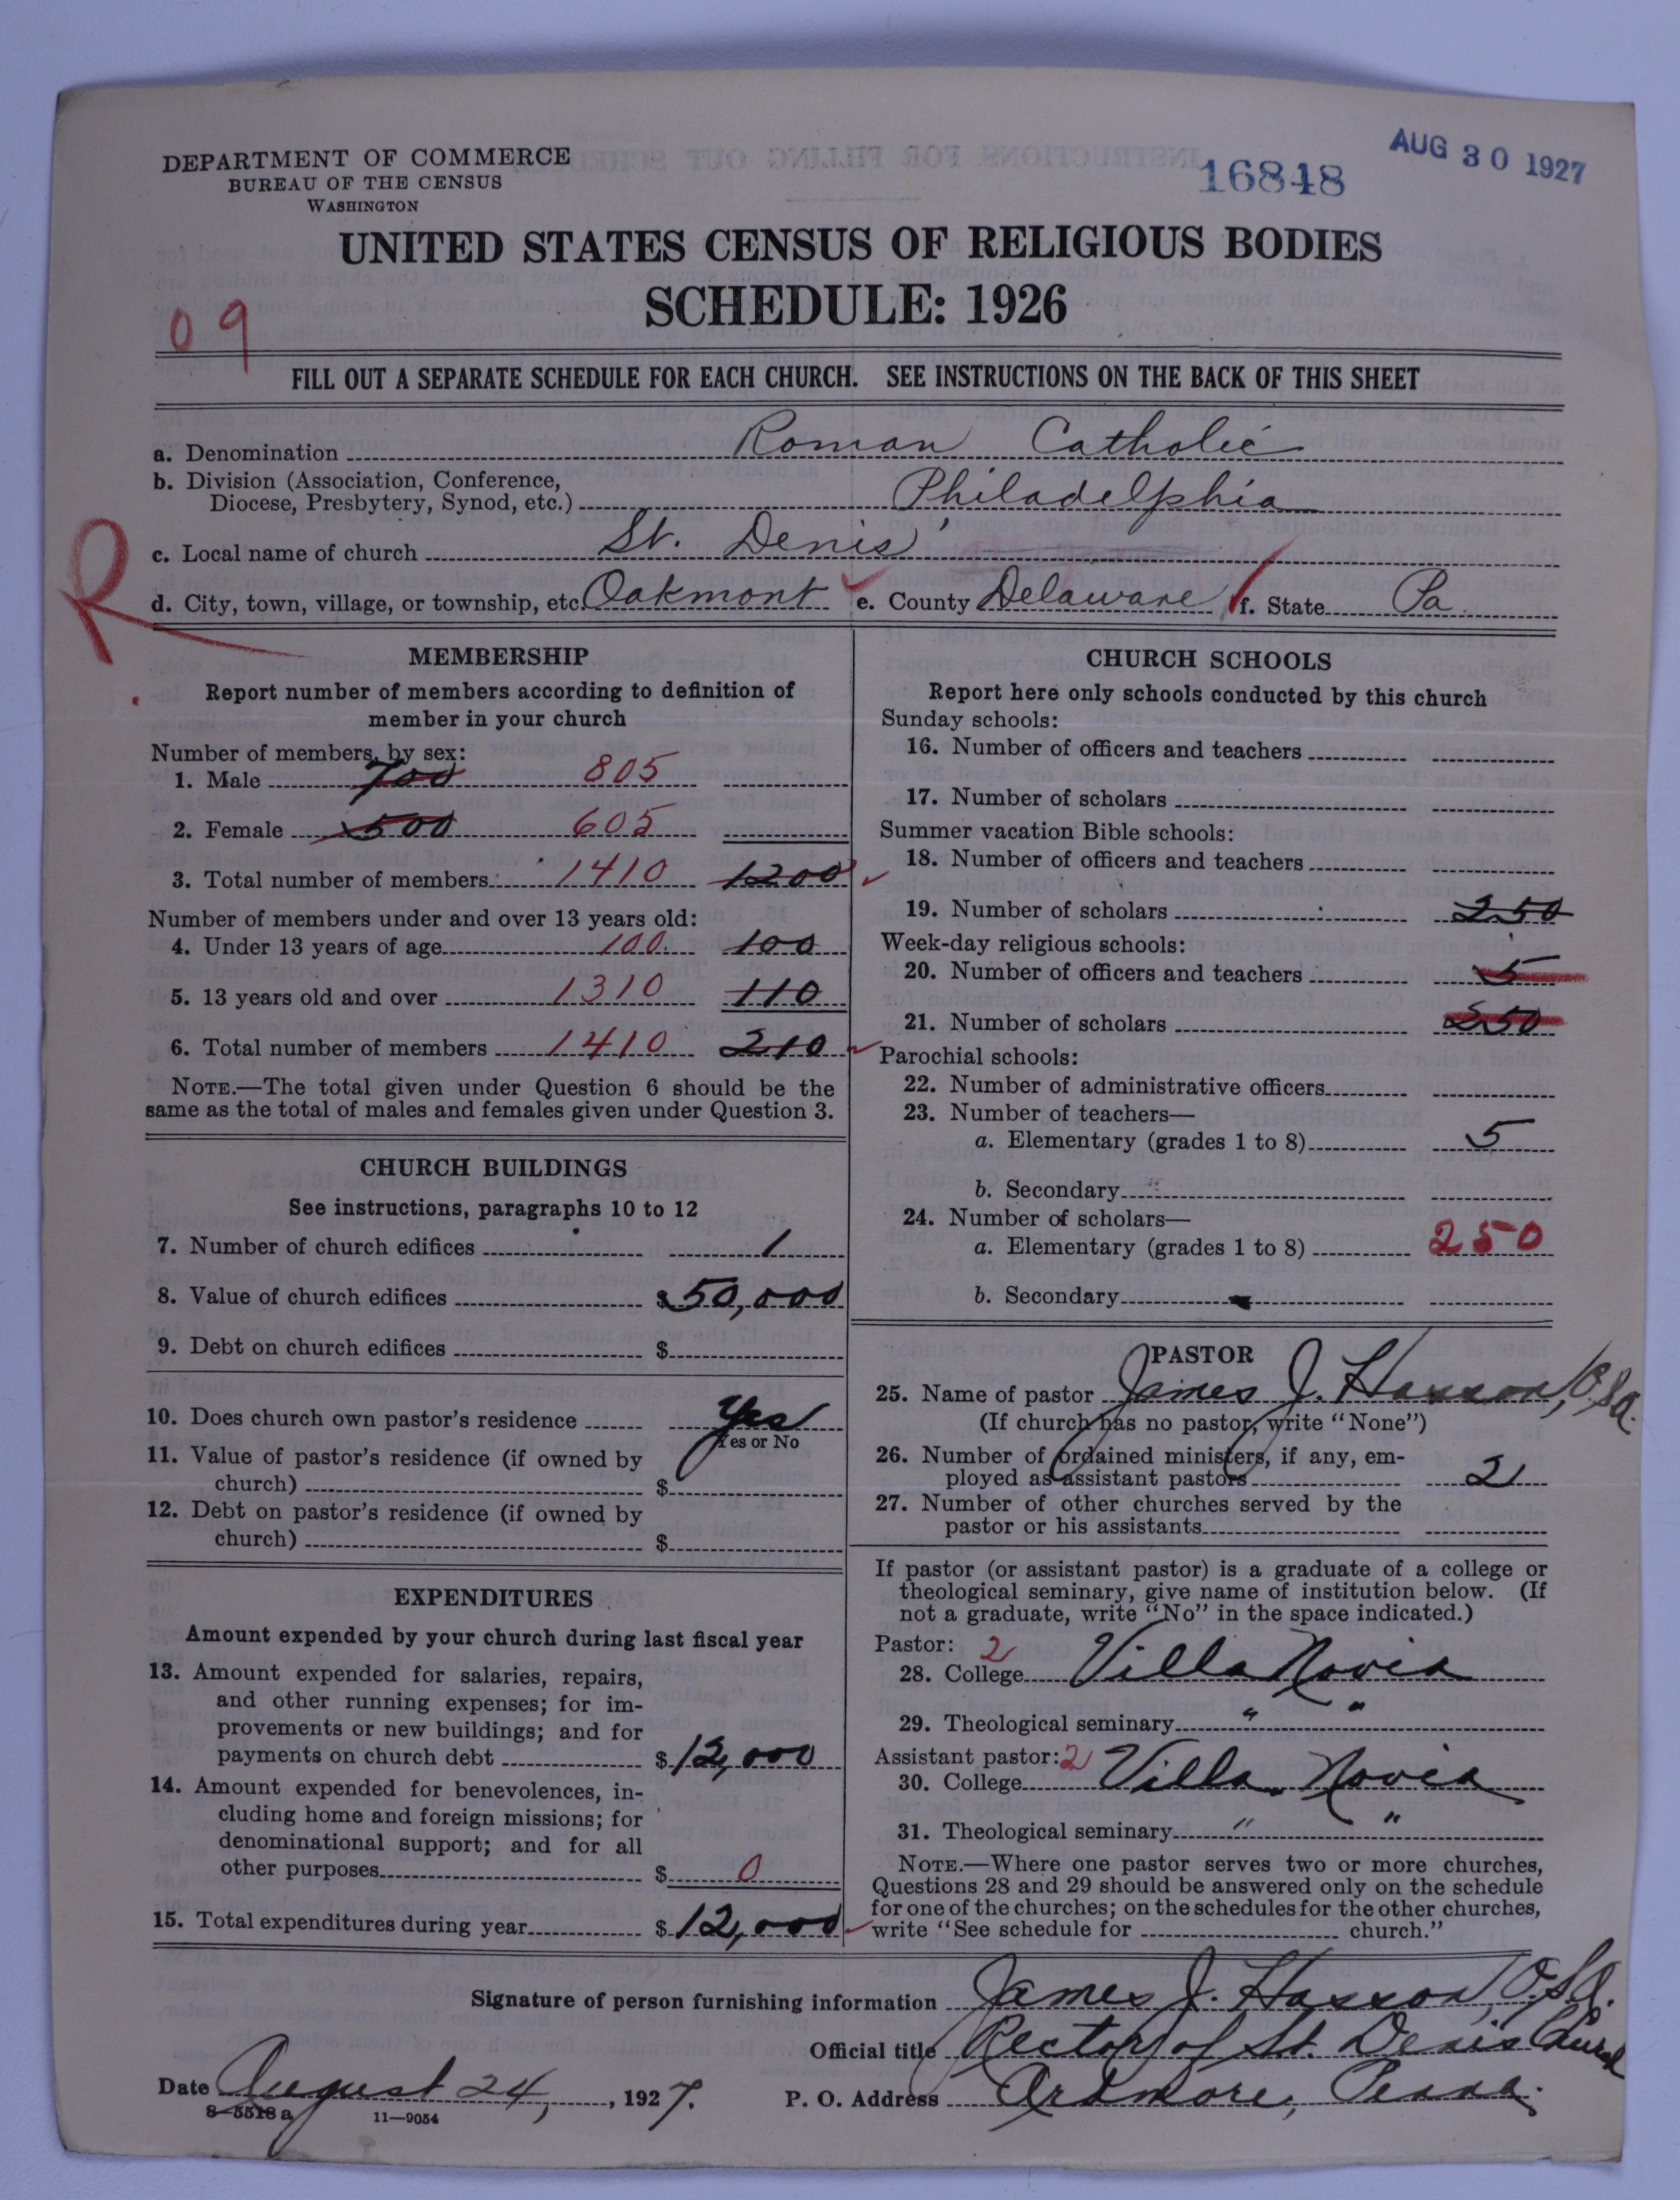 DEPARTMENT OF COMMERCE
BUREAU OF THE CENSUS
WASHINGTON
16848
AUG 30 1927
UNITED STATES CENSUS OF RELIGIOUS BODIES
SCHEDULE: 1926
09
FILL OUT A SEPARATE SCHEDULE FOR EACH CHURCH. SEE INSTRUCTIONS ON THE BACK OF THIS SHEET
a. Denomination Roman Catholic
b. Division (Association, Conference,
Diocese, Presbytery, Synod, etc.) Philadelphia
c. Local name of church St. Denis'
R
d. City, town, village, or township, etc. Oakmont e. County Delaware f. State Pa.
MEMBERSHIP
Report number of members according to definition of
member in your church
Number of members, by sex:
1. Male 700 805
2. Female 500 605
3. Total number of members 1410 1200
Number of members under and over 13 years old:
4. Under 13 years of age 100 100
5. 13 years old and over 1310 110
6. Total number of members 1410 210
NOTE.—The total given under Question 6 should be the
same as the total of males and females given under Question 3.
CHURCH BUILDINGS
See instructions, paragraphs 10 to 12
7. Number of church edifices 1
8. Value of church edifices $50,000
9. Debt on church edifices $
10. Does church own pastor's residence Yes
Yes or No
11. Value of pastor's residence (if owned by
church) $
12. Debt on pastor's residence (if owned by
church) $
EXPENDITURES
Amount expended by your church during last fiscal year
13. Amount expended for salaries, repairs,
and other running expenses; for im-
provements or new buildings; and for
payments on church debt $12,000
14. Amount expended for benevolences, in-
cluding home and foreign missions; for
denominational support; and for all
other purposes $ 0
15. Total expenditures during year $12,000
CHURCH SCHOOLS
Report here only schools conducted by this church
Sunday schools:
16. Number of officers and teachers
17. Number of scholars
Summer vacation Bible schools:
18. Number of officers and teachers
19. Number of scholars 250
Week-day religious schools:
20. Number of officers and teachers 5
21. Number of scholars 250
Parochial schools:
22. Number of administrative officers
23. Number of teachers—
a. Elementary (grades 1 to 8) 5
b. Secondary
24. Number of scholars—
a. Elementary (grades 1 to 8) 250
b. Secondary
PASTOR
25. Name of pastor James J. Hasson, O.S.A.
(If church has no pastor, write "None")
26. Number of ordained ministers, if any, em-
ployed as assistant pastors 2
27. Number of other churches served by the
pastor or his assistants
If pastor (or assistant pastor) is a graduate of a college or
theological seminary, give name of institution below. (If
not a graduate, write "No" in the space indicated.)
Pastor: 2
28. College Villa Novia
29. Theological seminary " "
Assistant pastor: 2
30. College Villa Novia
31. Theological seminary " "
NOTE.—Where one pastor serves two or more churches,
Questions 28 and 29 should be answered only on the schedule
for one of the churches; on the schedules for the other churches,
write "See schedule for church."
Signature of person furnishing information James J. Hasson, O.S.A.
Official title Rector of St. Denis Church
Date August 24, 1927. P. O. Address Ardmore, Penna.
8-5518 a 11—9054